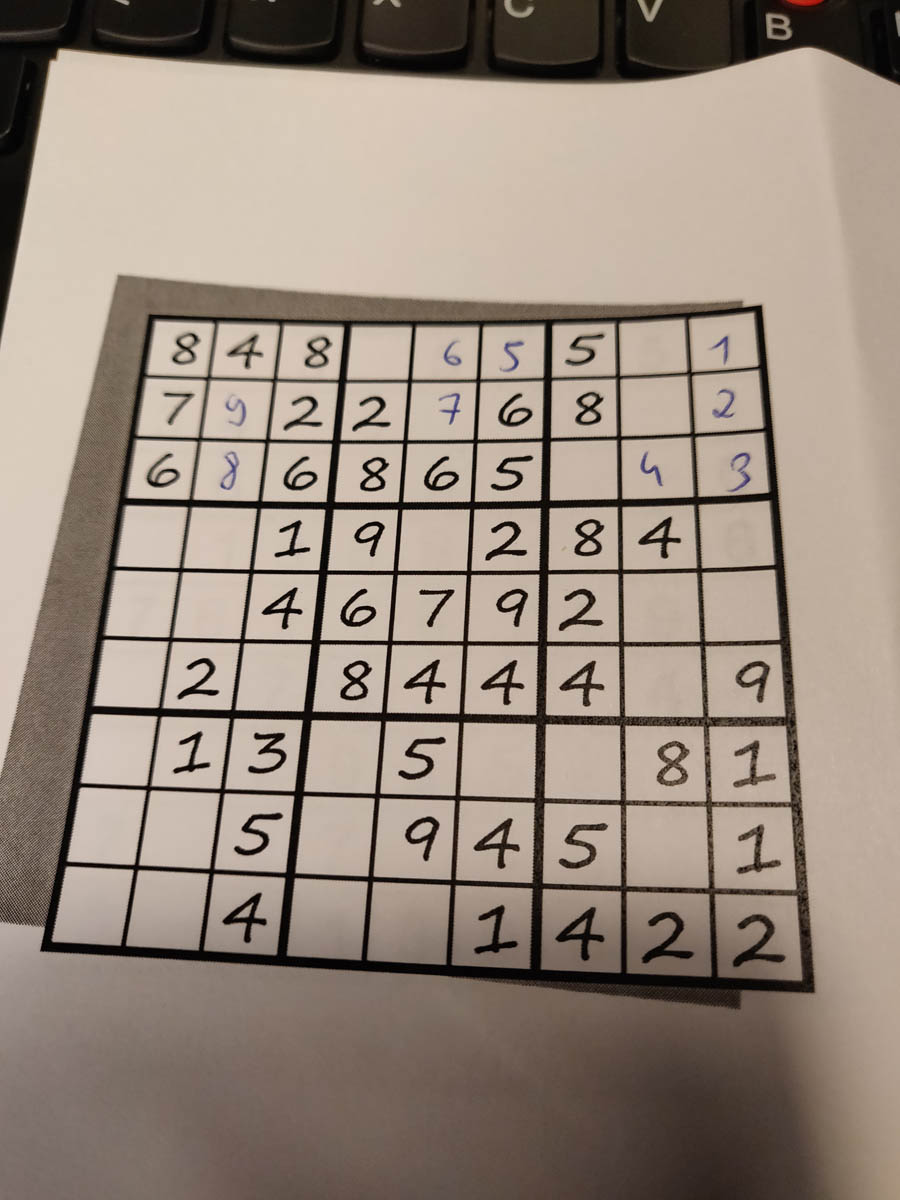 X C V B
8 4 8 6 5 5 1
7 9 2 2 7 6 8 2
6 8 6 8 6 5 4 3
1 9 2 8 4
4 6 7 9 2
2 8 4 4 4 9
1 3 5 8 1
5 9 4 5 1
4 1 4 2 2